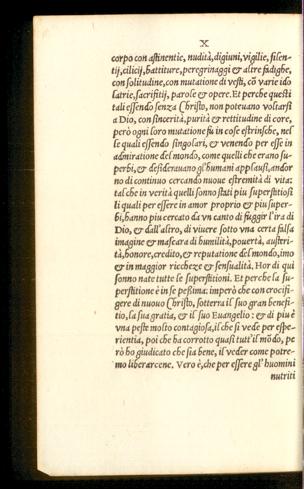 X
corpo con astinentie, nudità, digiuni, vigilie, silen-
tij, cilicij, battiture, peregrinaggi & altre fadighe,
con solitudine, con mutatione di vesti, cō varie ido
latrie, sacrifitij, parole & opere. Et perche questi
tali essendo senza Christo, non poteuano voltarsi
a Dio, con sincerità, purità & rettitudine di core,
però ogni loro mutatione fù in cose estrinsche, nel
le quali essendo singolari, & venendo per esse in
admiratione del mondo, come quelli che erano su-
perbi, & desiderauano gl'humani applausi, andor
no di continuo cercando nuoue estremità di vita:
tal che in verità quelli sonno stati piu superstitiosi
ti quali per essere in amor proprio & piu super-
bi, hanno piu cercato da vn canto di fuggir l'ira di
Dio, & dall'altro, di viuere sotto vna certa falsa
imagine & mascara di humilità, pouertà, austeri-
tà, honore, credito, & reputatione del mondo, imo
& in maggior ricchezze & sensualità. Hor di qui
sonno nate tutte le superstitioni. Et perche la su-
perstitione è in se peßima: imperò che con crocifi-
gere di nuouo Christo, sotterra il suo gran benefi-
tio, la sua gratia, & il suo Euangelio: & di piu è
vna peste molto contagiosa, il che si vede per espe-
rientia, poi che ha corrotto quasi tutt'il mōdo, pe
rò ho giudicato che sia bene, il veder come potre-
mo liberarcene. Vero è, che per essere gl'huomini
nutriti